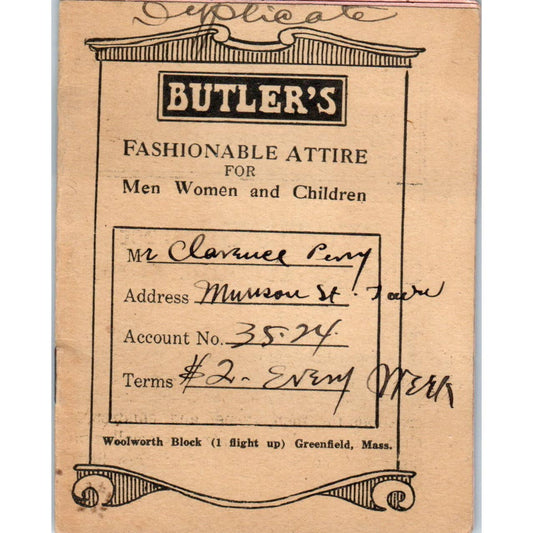 Duplicate
BUTLER'S
FASHIONABLE ATTIRE
FOR
Men Women and Children
Mr Clarence Perry
Address Munson St. Town
Account No. 35.24.
Terms $2 - Every Week
Woolworth Block (1 flight up) Greenfield, Mass.